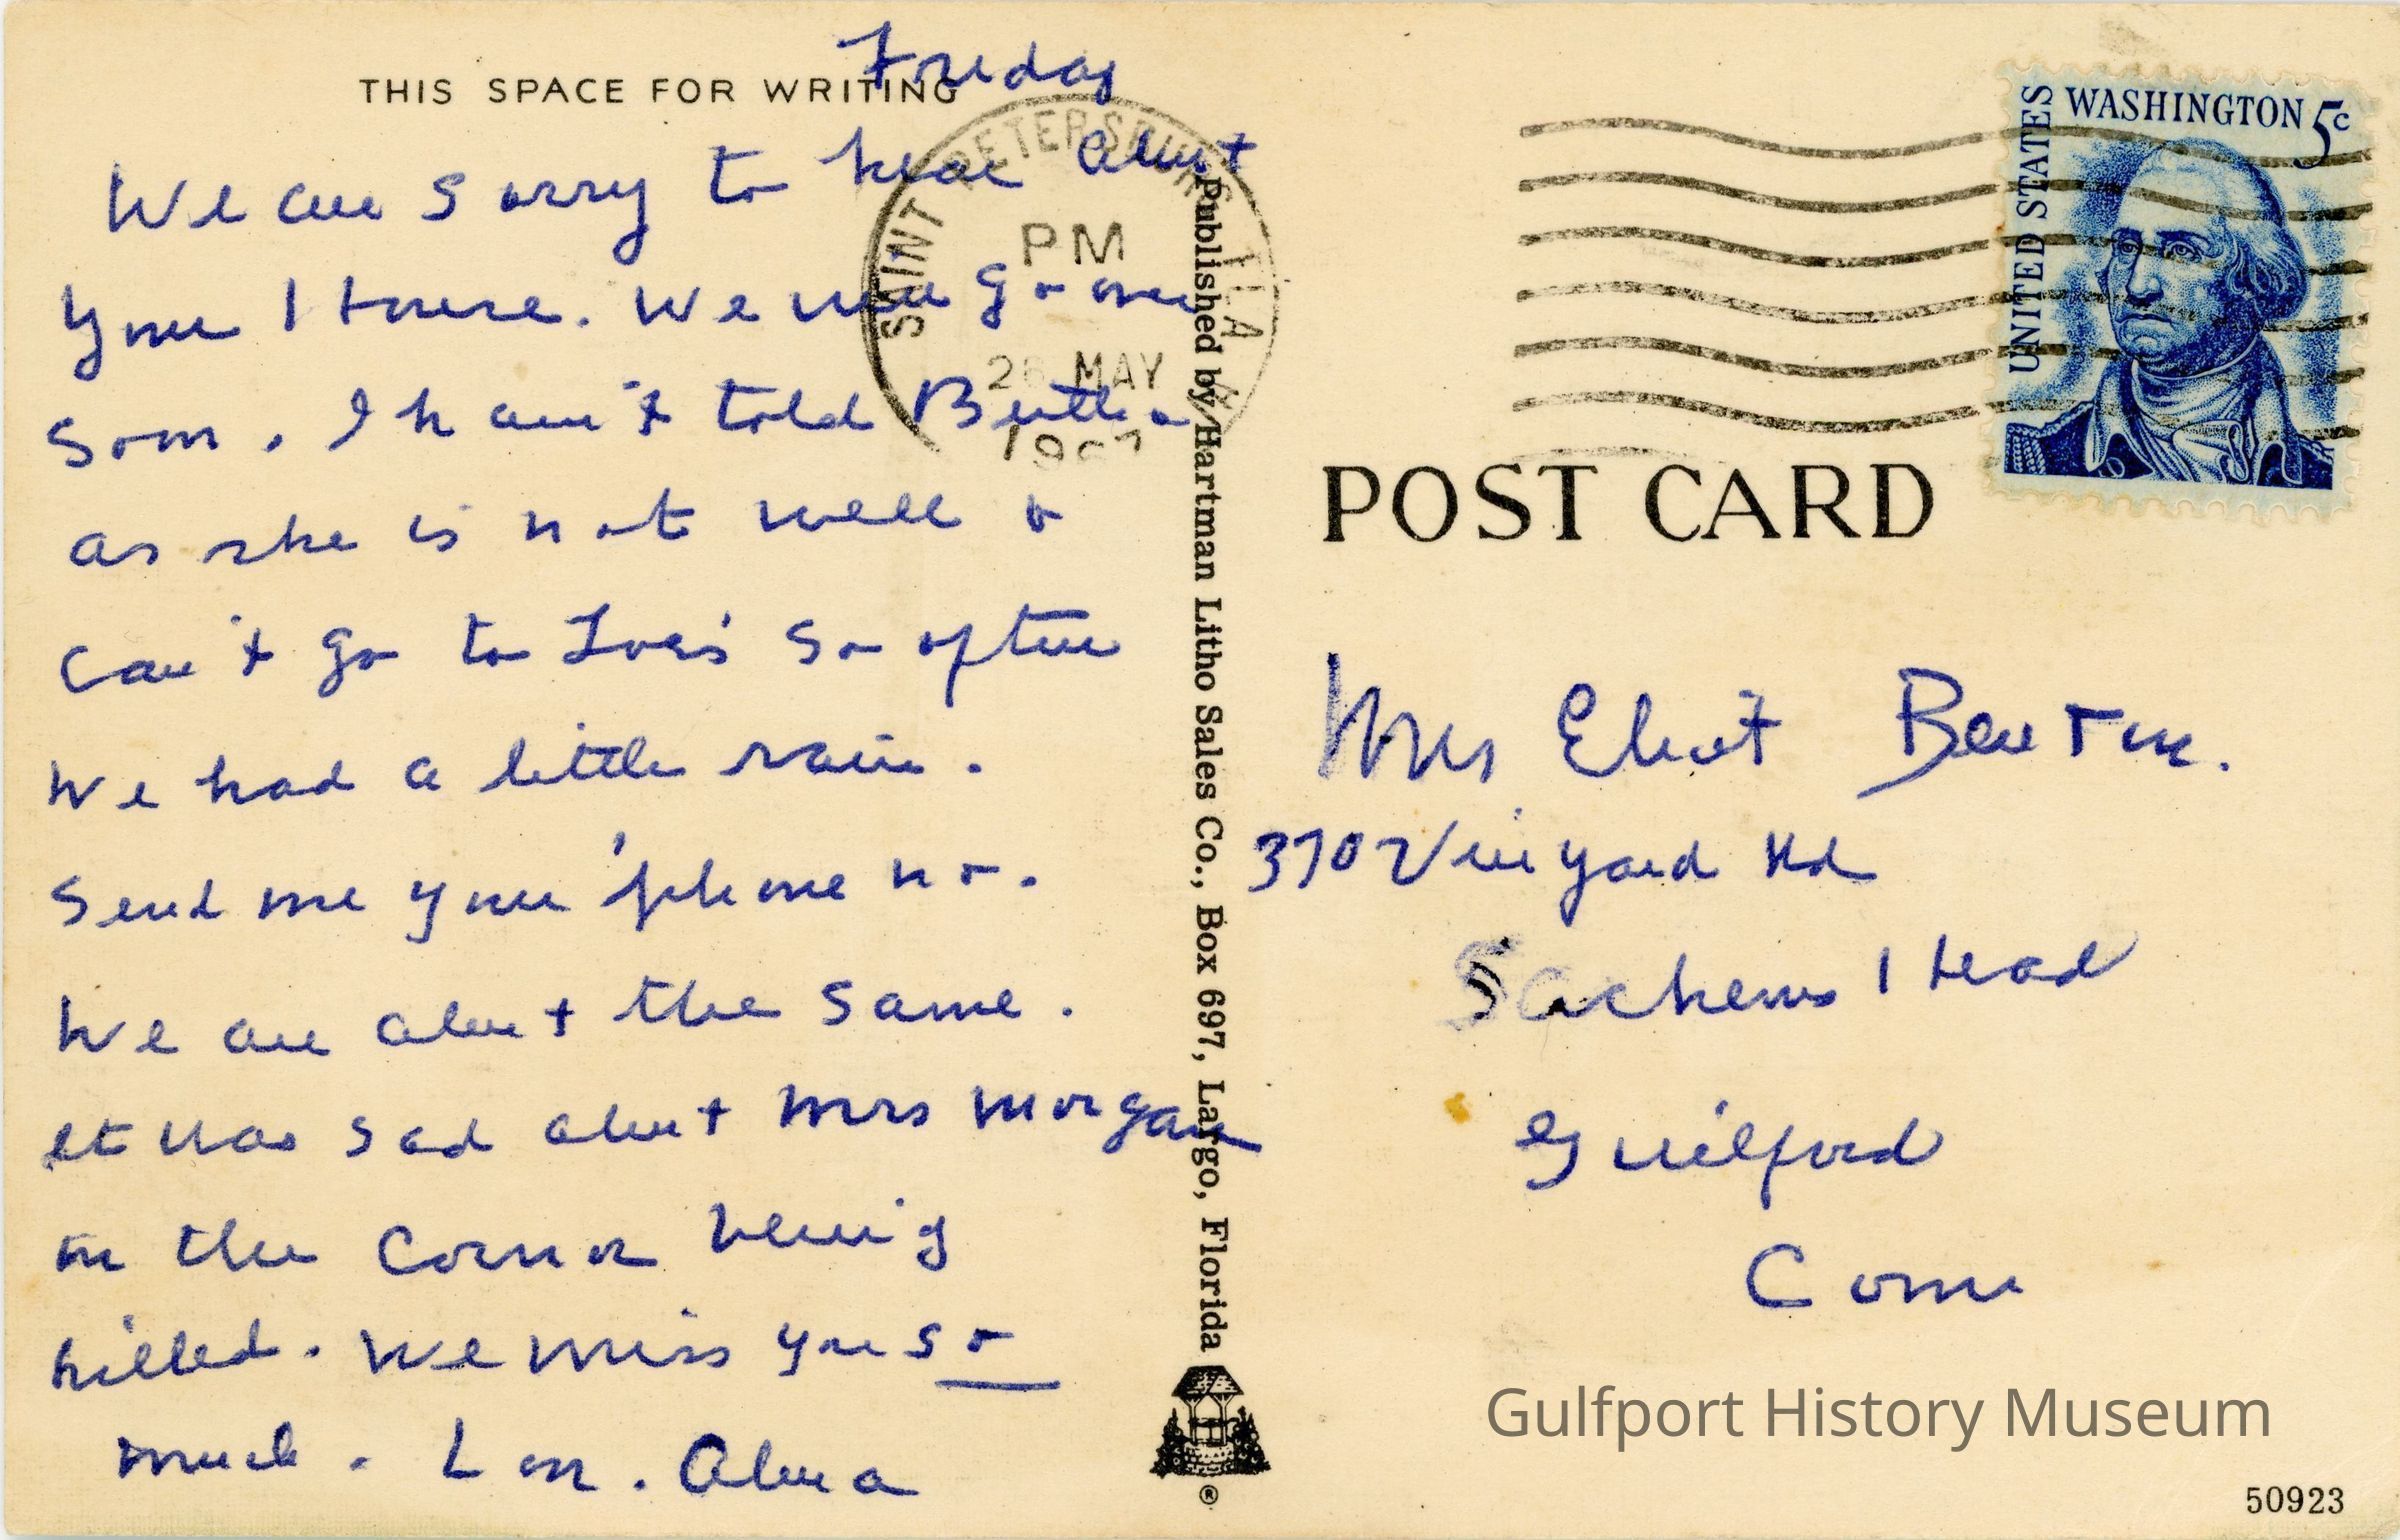 Friday
THIS SPACE FOR WRITING
We are sorry to hear about
your House. We will go over
soon. I haven't told Bertha
as she is not well &
can't go to Lou's so often
We had a little rain.
Send me your 'phone no.
We are about the same.
It was sad about Mrs Morgan
on the corner being
killed. We miss you so
much. Alma
SAINT PETERSBURG FLA
PM
26 MAY
1967
Published by Hartman Litho Sales Co., Box 697, Largo, Florida
®
UNITED STATES
WASHINGTON 5c
POST CARD
Mrs Eliot
370 Vineyard Rd
Sachems Head
Guilford
Conn
Gulfport History Museum
50923